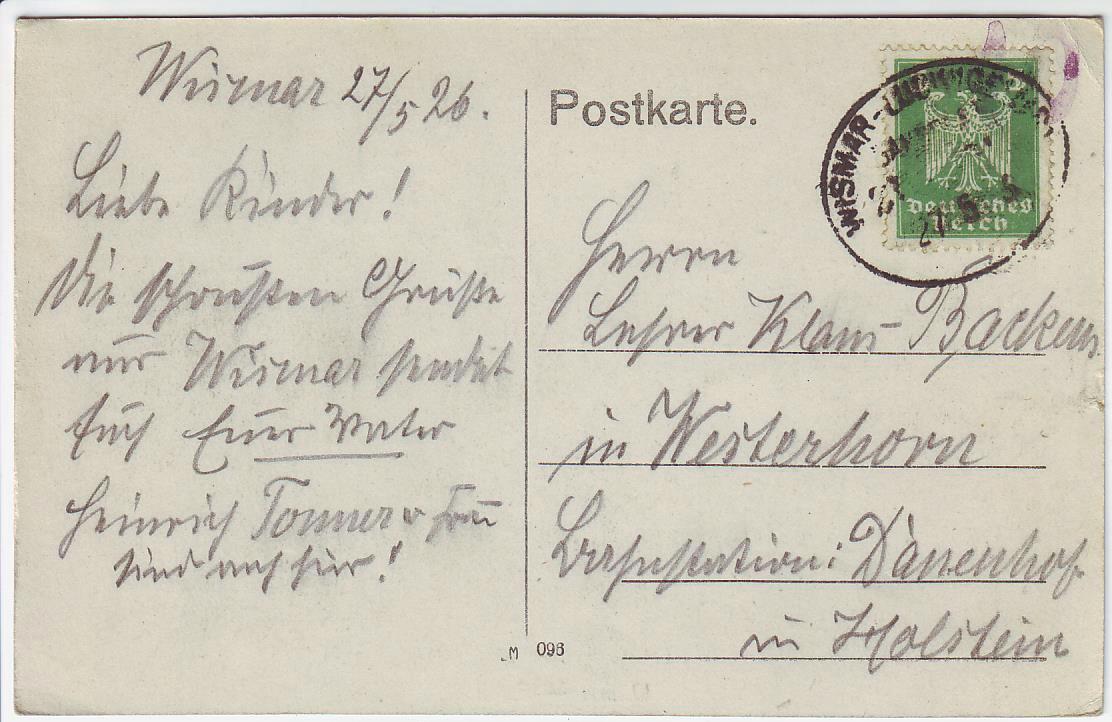 Wismar 27/5 26.
Liebe Kinder!
Die schönsten Grüße
aus Wismar sendet
Euch Euer Vater
Heinrich u Frau
sind auch hier!
Postkarte.
WISMAR-
27 5
Deutsches
Reich
Herrn
Lehrer Klaus Backens
in Westerhorn
Bahnstation: Dauenhof
in Holstein
M 096